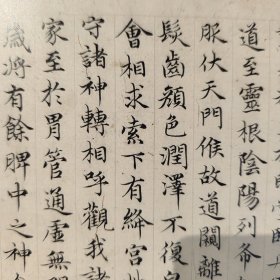 道至靈根陰陽列布
服伏天門候故道闚離
髮齒顏色潤澤不復白
會相求索下有絳宮
守諸神轉相呼觀我諸
家至於胃管通虛無
歲將有餘脾中之神